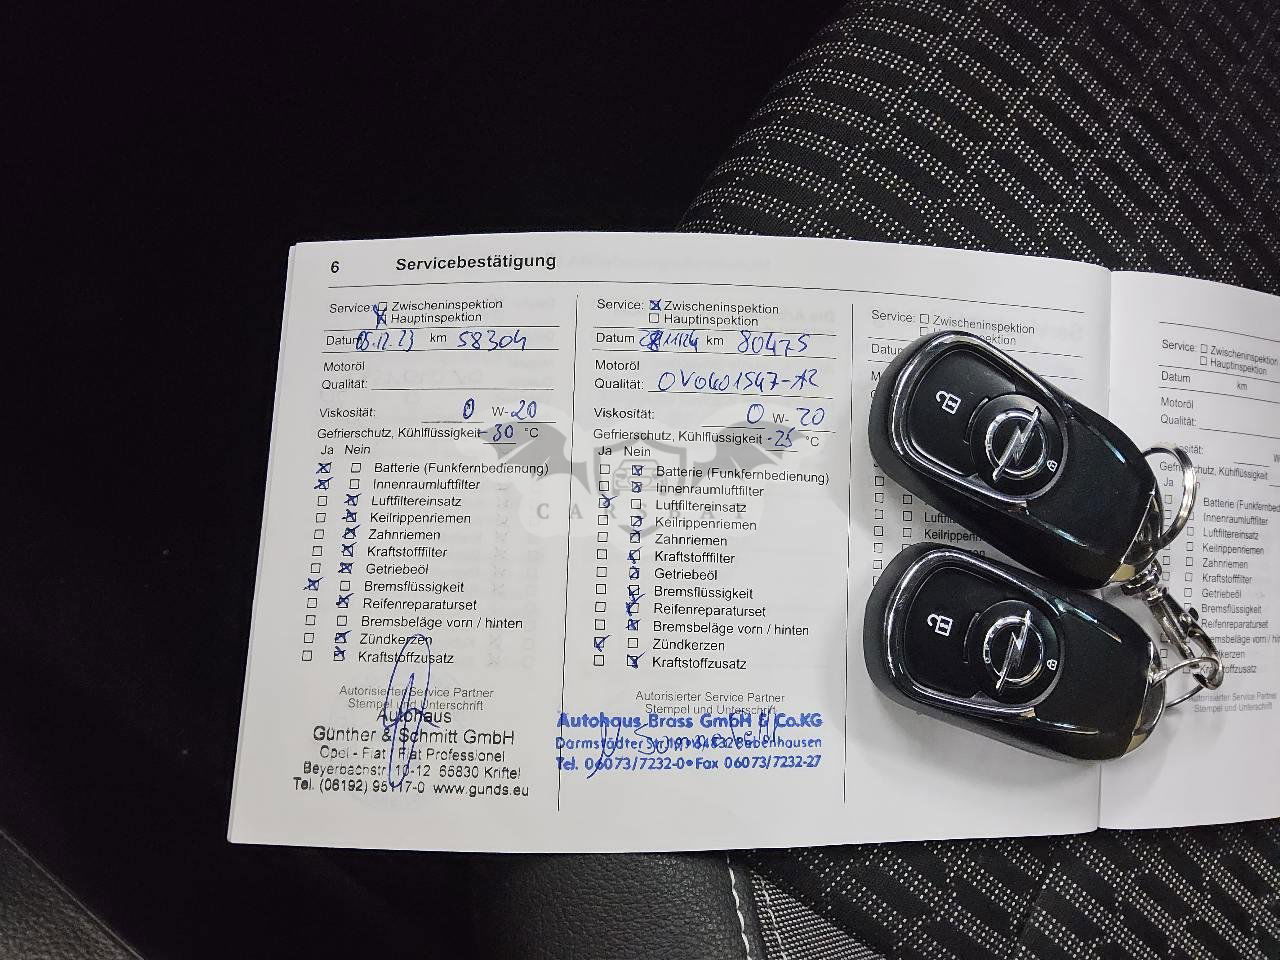 6 Servicebestätigung
Service: Zwischeninspektion
Hauptinspektion
Datum 05.12.23 km 58304
Motoröl
Qualität:
Viskosität: 0 W- 20
Gefrierschutz, Kühlflüssigkeit -30 °C
Ja Nein
Batterie (Funkfernbedienung)
Innenraumluftfilter
Luftfiltereinsatz
Keilrippenriemen
Zahnriemen
Kraftstofffilter
Getriebeöl
Bremsflüssigkeit
Reifenreparaturset
Bremsbeläge vorn / hinten
Zündkerzen
Kraftstoffzusatz
Autorisierter Service Partner
Stempel und Unterschrift
Autohaus
Günther & Schmitt GmbH
Opel - Fiat / Fiat Professionel
Beyerbachstr. 10-12 65830 Kriftel
Tel. (06192) 95117-0 www.gunds.eu
Service: Zwischeninspektion
Hauptinspektion
Datum km 80475
Motoröl
Qualität: OV0401547-A2
Viskosität: 0 W- 20
Gefrierschutz, Kühlflüssigkeit -25 °C
Ja Nein
Batterie (Funkfernbedienung)
Innenraumluftfilter
Luftfiltereinsatz
Keilrippenriemen
Zahnriemen
Kraftstofffilter
Getriebeöl
Bremsflüssigkeit
Reifenreparaturset
Bremsbeläge vorn / hinten
Zündkerzen
Kraftstoffzusatz
Autorisierter Service Partner
Stempel und Unterschrift
Autohaus Brass GmbH & Co.KG
Darmstädter Str. 64832 Babenhausen
Tel. 06073/7232-0 • Fax 06073/7232-27
Service: Zwischeninspektion
Service: Zwischeninspektion
Hauptinspektion
Datum km
Motoröl
Qualität:
Ja
Batterie
Innenraumluftfilter
Luftfiltereinsatz
Keilrippenriemen
Zahnriemen
Kraftstofffilter
Getriebeöl
Bremsflüssigkeit
Reifenreparaturset
Autorisierter Service Partner
Stempel und Unterschrift
CARSBAT